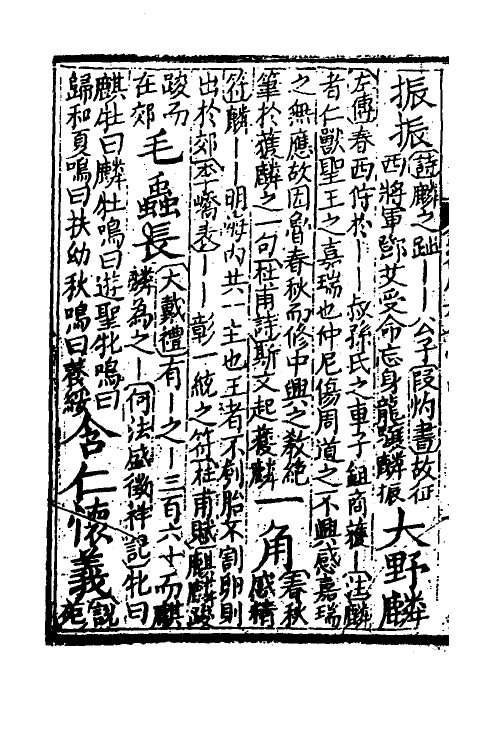 振振詩麟之趾——公子段灼書故征
西將軍鄧艾受命忘身龍驤麟振大野麟
左傳春西狩於——叔孫氏之車子鉏商獲—注麟
者仁獸聖王之嘉瑞也仲尼傷周道之不興感嘉瑞
之無應故因魯春秋而修中興之教絶
筆於獲麟之一句杜甫詩斯文起獲麟一角春秋
感精
符麟——明海内共一主也王者不刳胎不剖卵則
出於郊李嶠表——彰一統之符杜甫賦麒麟踆
踆而
在郊毛蟲長大戴禮有—之—三百六十而麒
麟為之—何法盛徵祥記牝曰
麒牡曰麟牡鳴曰遊聖牝鳴曰
歸和夏鳴曰扶幼秋鳴曰養綏含仁懷義說
苑